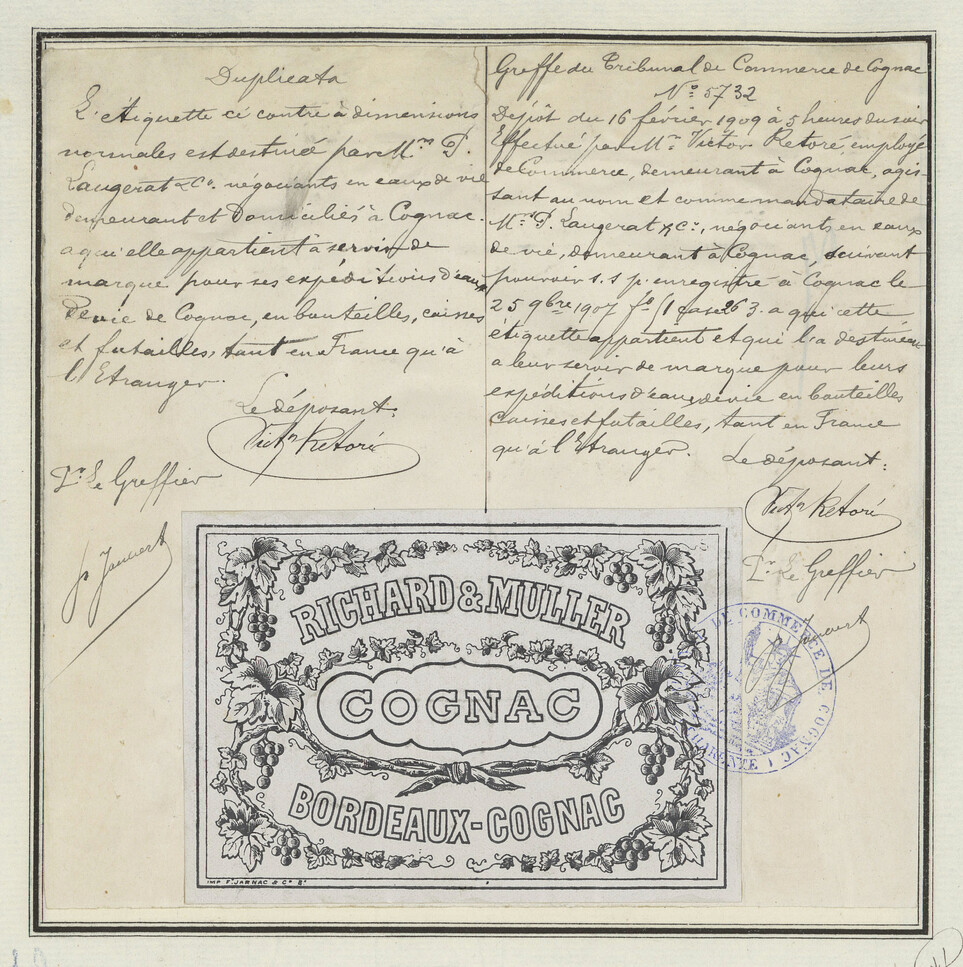 Duplicata
L'étiquette ci contre à dimensions
normales est destiné par Mrs P.
Laugerat & Cie. négociants en eaux de vie
demeurant et domiciliés à Cognac.
a qui elle appartient à servir de
marque pour ses expéditions d'eaux
de vie de Cognac, en bouteilles, caisses
et futailles, tant en France qu'à
l'Etranger.
Le déposant.
Victor Retoré
Pr. Le Greffier
Greffe du Tribunal de Commerce de Cognac
No. 5732
Dépôt du 16 février 1909 à 5 heures du soir
Effectué par Mr. Victor Retoré employé
de Commerce, demeurant à Cognac, agis-
sant au nom et comme mandataire de
Mr. P. Laugerat & Cie, négociants en eaux
de vie, demeurant à Cognac, suivant
pouvoir s.s.p. enregistré à Cognac le
25 9bre 1907 fo 11 case 263. a qui cette
étiquette appartient et qui l'a destinée
a leur servir de marque pour leurs
expéditions d'eau de vie en bouteilles
caisses et futailles, tant en France
qu'à l'Etranger.
Le déposant:
Victor Retoré
Pr. Le Greffier
RICHARD & MULLER
COGNAC
BORDEAUX-COGNAC
IMP. F. JARNAC & Cie
DE COMMERCE DE COGNAC
CHARENTE